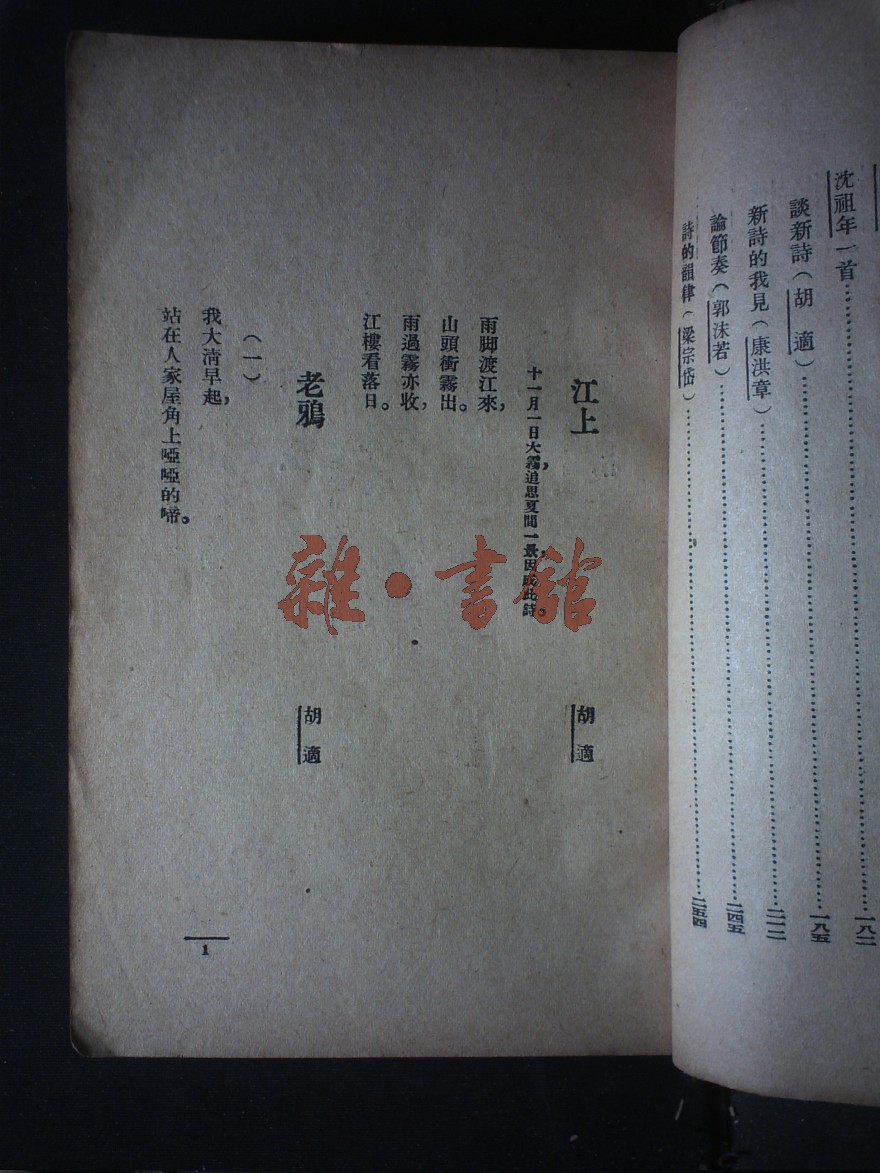 沈祖年一首…………一八二
談新詩（胡適）…………一八五
新詩的我見（康洪章）…………二一二
論節奏（郭沫若）…………二四五
詩的韻律（梁宗岱）…………二五四
江上
胡適
十一月一日大霧，追思夏間一景，因成此詩。
雨脚渡江來，
山頭衝霧出。
雨過霧亦收，
江樓看落日。
老鴉
胡適
（一）
我大清早起，
站在人家屋角上啞啞的啼。
1
雜·書館